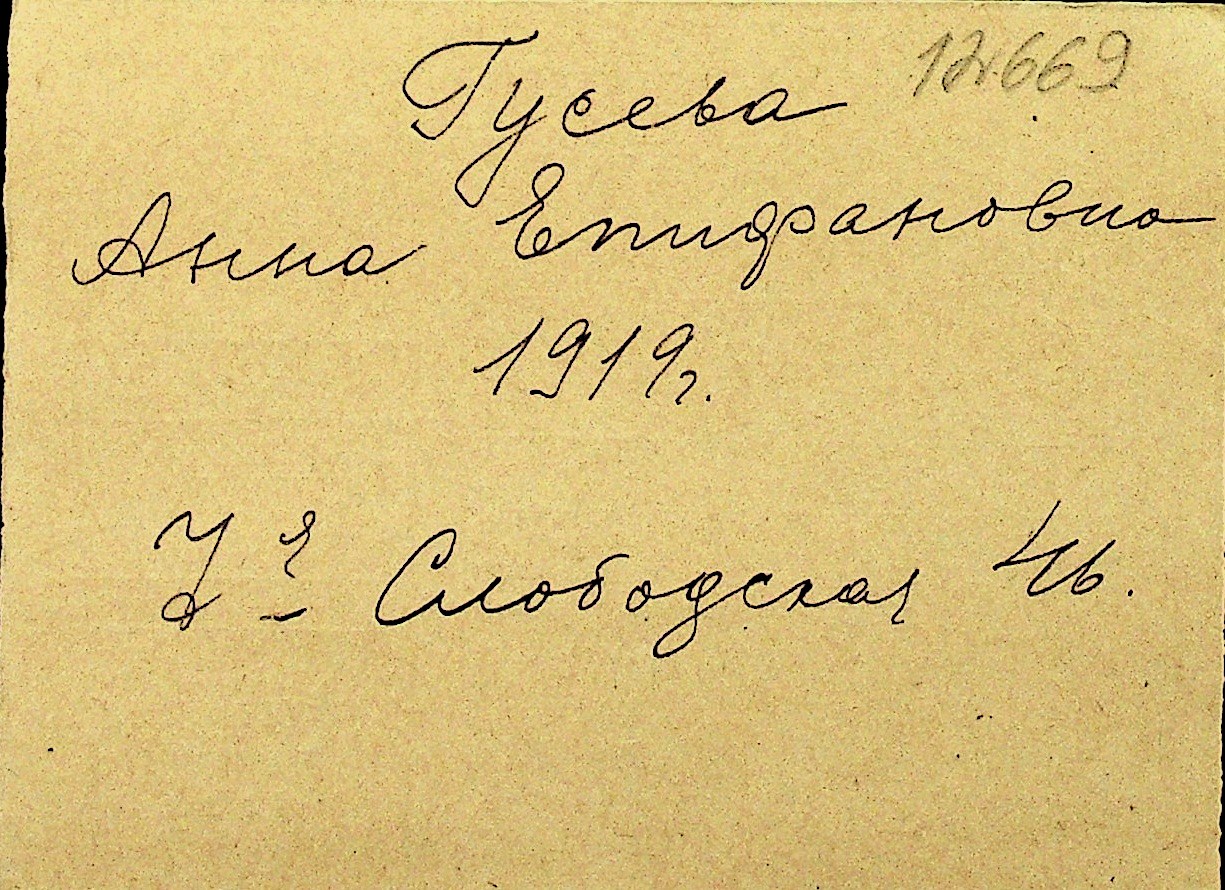 12669
Гусева
Анна Епифановна
1919г.
Слободская 46.